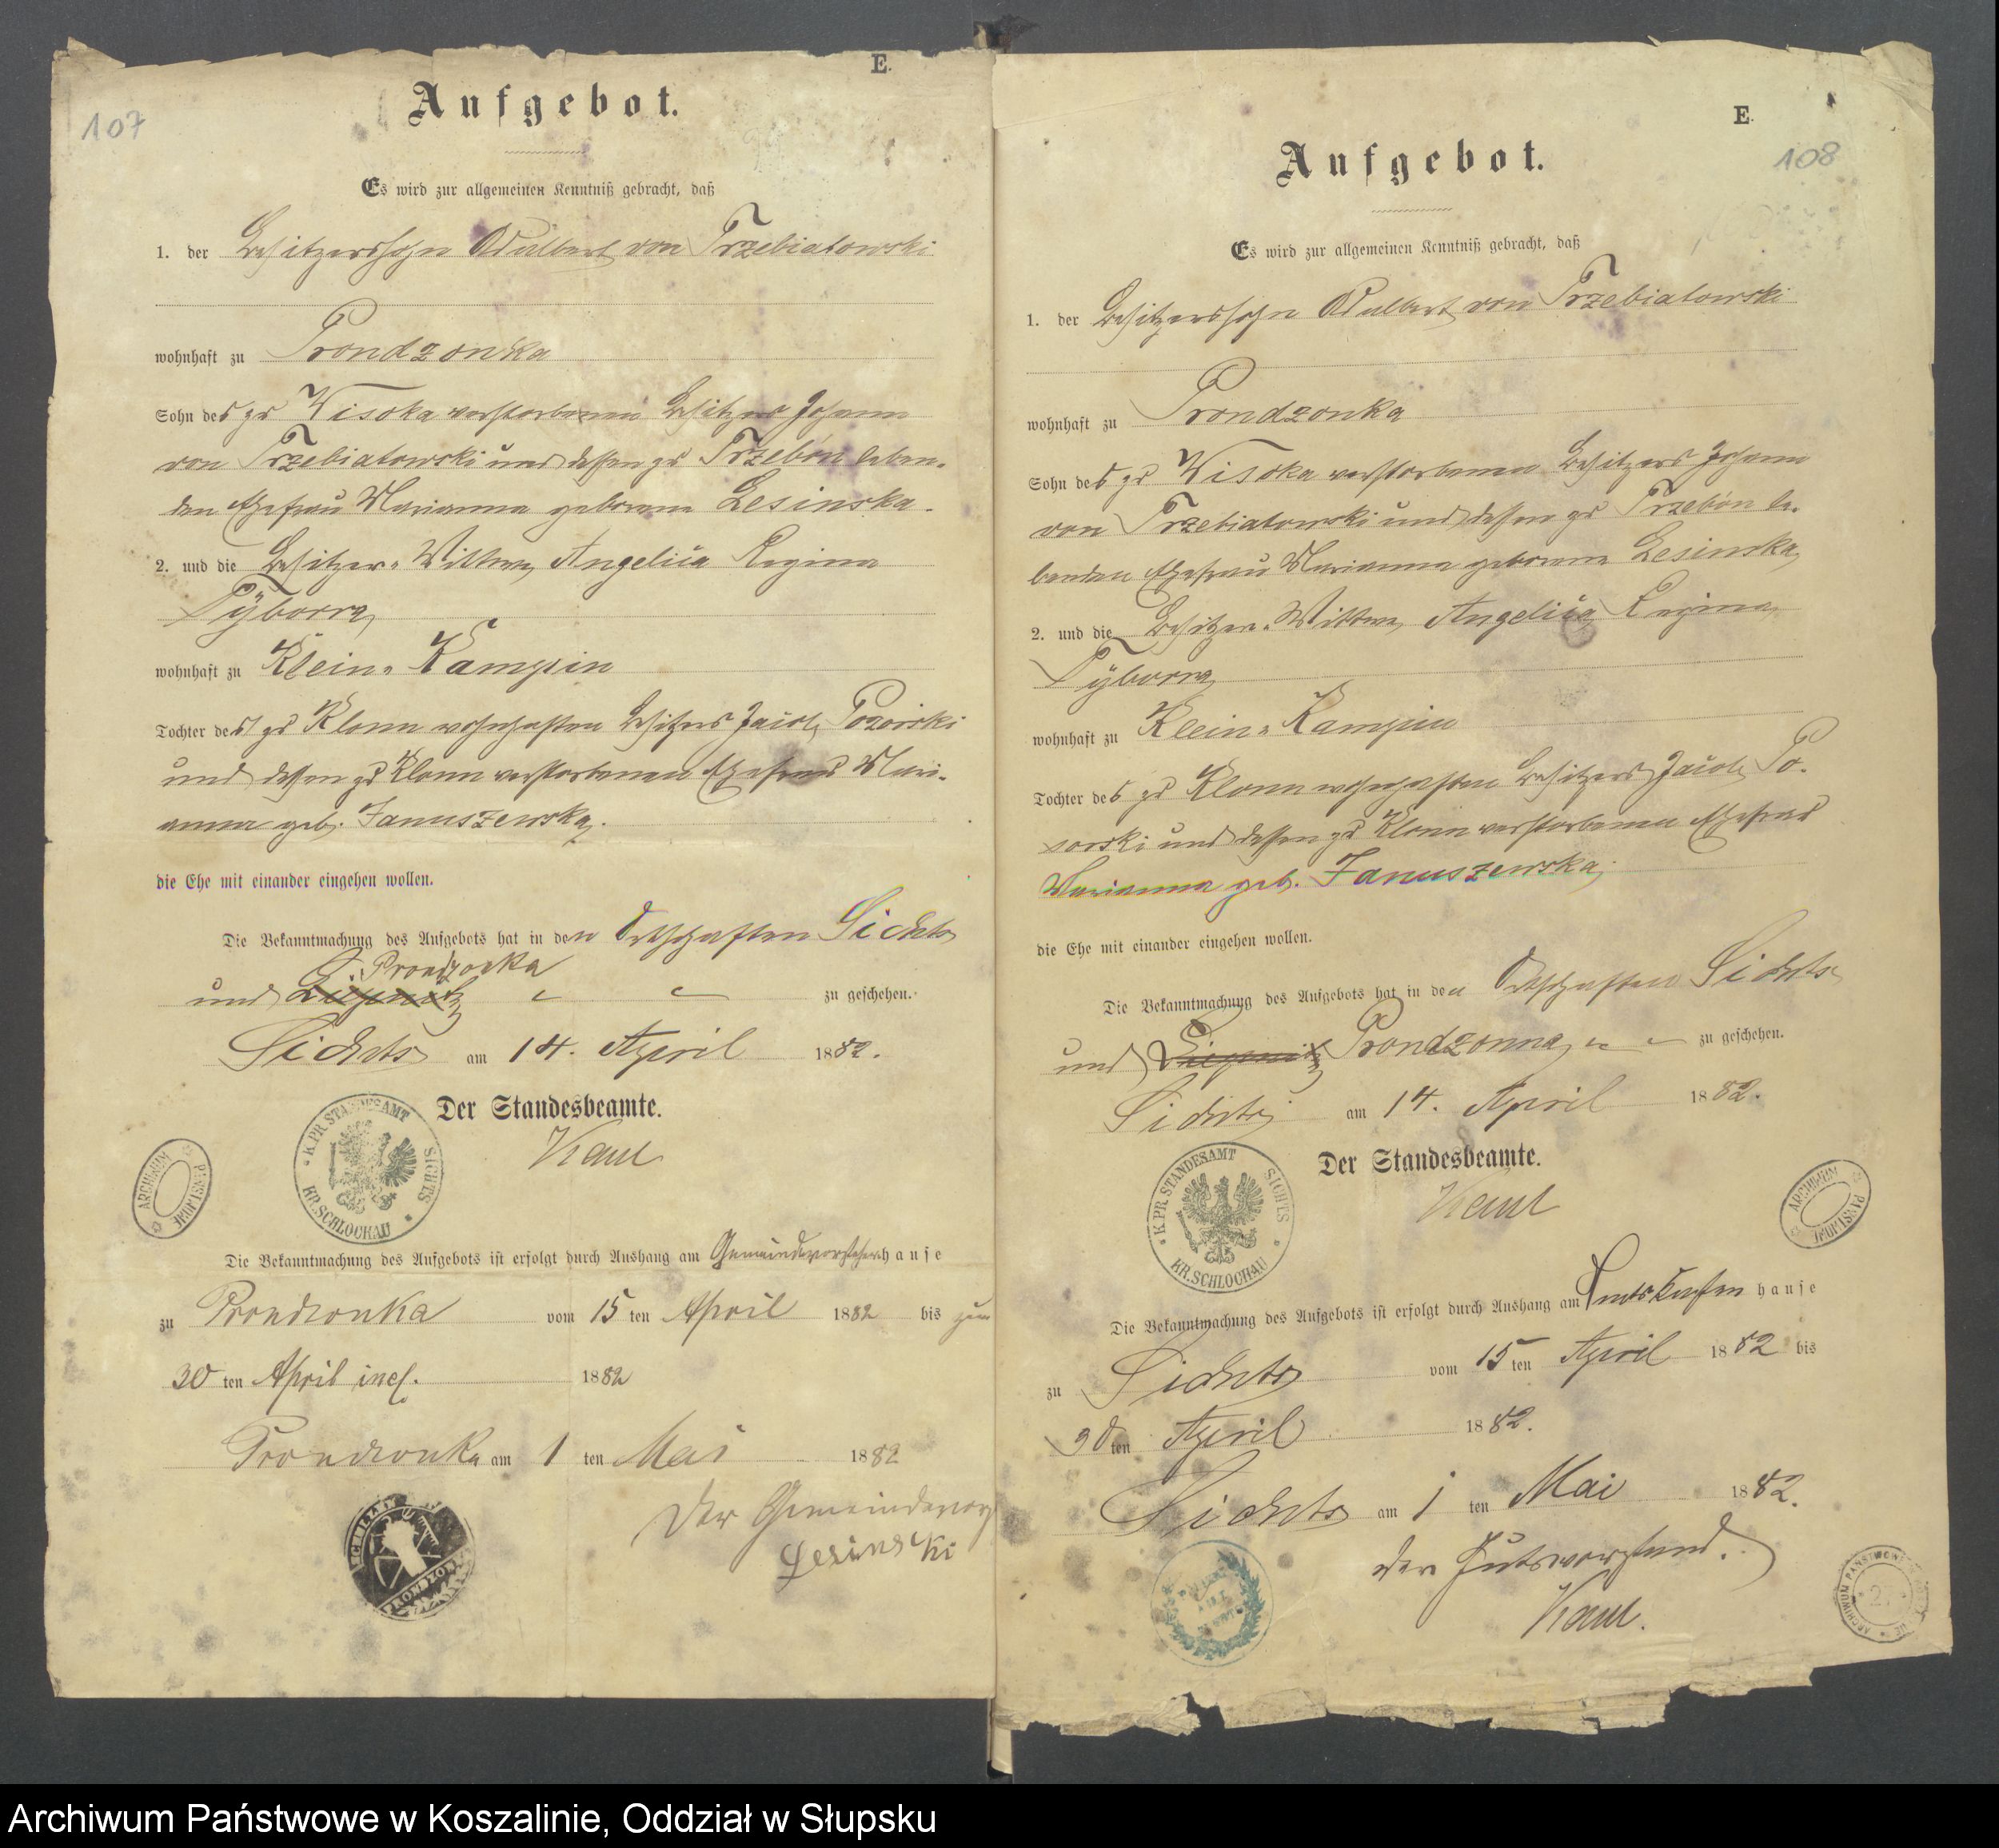 107
E.
Aufgebot.
Es wird zur allgemeinen Kenntniß gebracht, daß
1. der Besitzerssohn Adalbert von Trzebiatowski
wohnhaft zu Prondzonka
Sohn des zu Wisoka verstorbenen Besitzers Johann
von Trzebiatowski und dessen zu Trzebon leben-
den Ehefrau Marianna geborene Lesinska.
2. und die Besitzer-Wittwe Angelica Regina
Tyborra
wohnhaft zu Klein-Kampin
Tochter des zu Klonn wohnhaften Besitzers Jacob Pozorski
und dessen zu Klonn verstorbenen Ehefrau Mari-
anna geb. Januszewska.
die Ehe mit einander eingehen wollen.
Die Bekanntmachung des Aufgebots hat in den Ortschaften Sichts
Prondzonka
und zu geschehen.
Sichts am 14. April 1882.
Der Standesbeamte.
Kaul
K.PR.STANDESAMT SICHTS
KR.SCHLOCHAU
ARCHIWUM PAŃSTWOWE
Die Bekanntmachung des Aufgebots ist erfolgt durch Aushang am Gemeindevorsteherhause
zu Prondzonka vom 15 ten April 1882 bis zum
30 ten April incl. 1882
Prondzonka am 1 ten Mai 1882
Der Gemeindevor
Lesinski
108
E.
Aufgebot.
Es wird zur allgemeinen Kenntniß gebracht, daß
1. der Besitzerssohn Adalbert von Trzebiatowski
wohnhaft zu Prondzonka
Sohn des zu Wisoka verstorbenen Besitzers Johann
von Trzebiatowski und dessen zu Trzebon le-
benden Ehefrau Marianna geborene Lesinska,
2. und die Besitzer-Wittwe Angelica Regina
Tyborra
wohnhaft zu Klein-Kampin
Tochter des zu Klonn wohnhaften Besitzers Jacob Po-
sorski und dessen zu Klonn verstorbenen Ehefrau
Marianna geb. Januszewska,
die Ehe mit einander eingehen wollen.
Die Bekanntmachung des Aufgebots hat in den Ortschaften Sichts
und Prondzonna zu geschehen.
Sichts am 14. April 1882.
Der Standesbeamte.
Kaul
K.PR.STANDESAMT SICHTS
KR.SCHLOCHAU
ARCHIWUM PAŃSTWOWE
Die Bekanntmachung des Aufgebots ist erfolgt durch Aushang am hause
zu Sichts vom 15 ten April 1882 bis
30 ten April 1882.
Sichts am 1 ten Mai 1882.
der Gutsvorstand.
Kaul.
Archiwum Państwowe w Koszalinie, Oddział w Słupsku